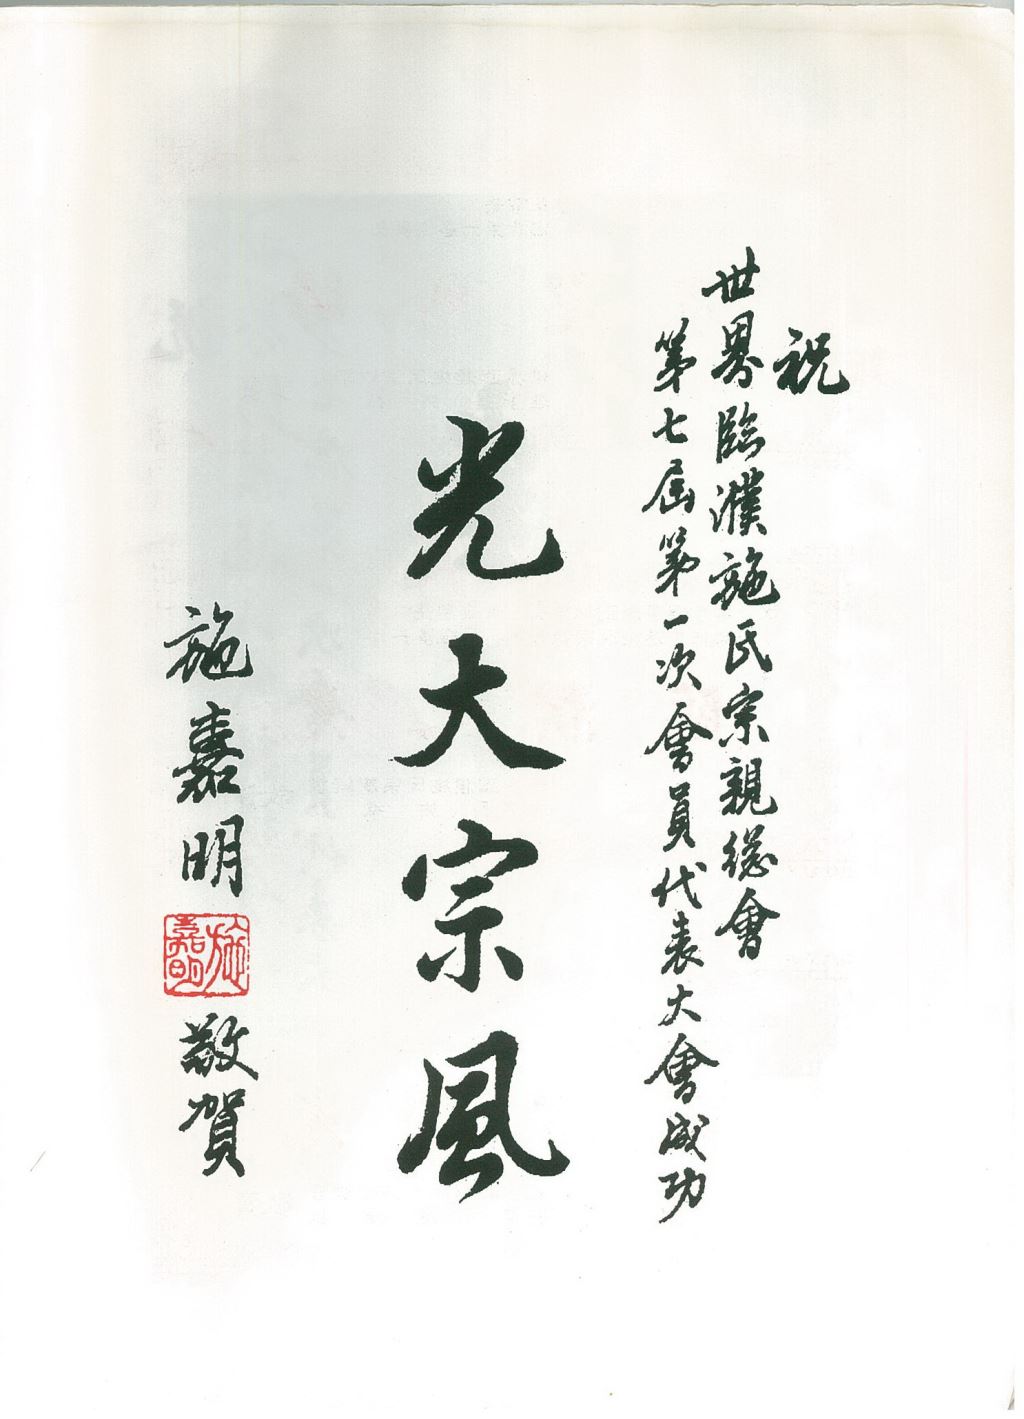 祝
世界臨濮施氏宗親總會
第七屆第一次會員代表大會成功
光大宗風
施嘉明
施嘉明
敬賀